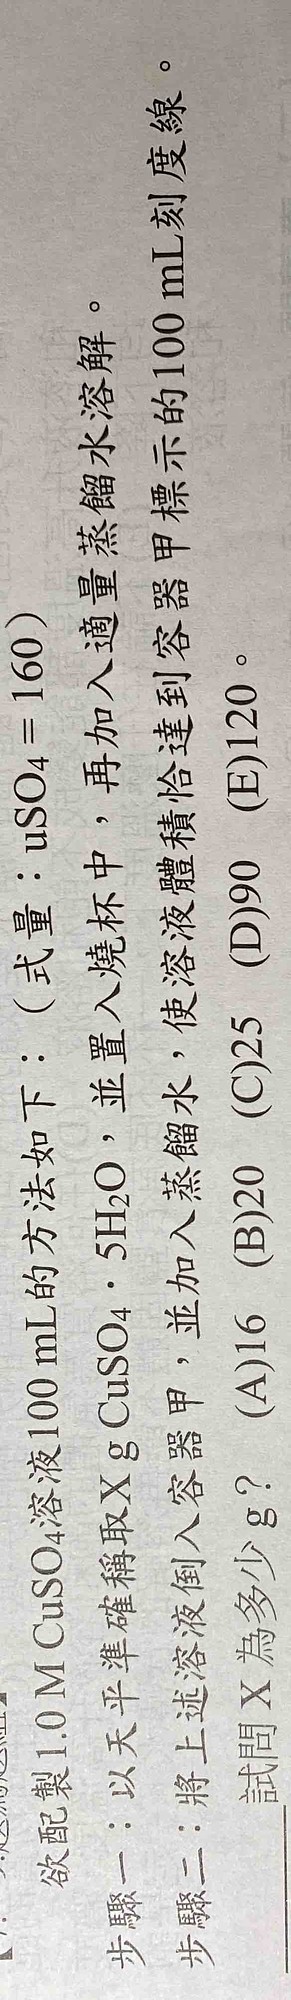 欲配製1.0 M CuSO₄溶液100 mL的方法如下：（式量：uSO₄＝160）
步驟一：以天平準確稱取X g CuSO₄・5H₂O，並置入燒杯中，再加入適量蒸餾水溶解。
步驟二：將上述溶液倒入容器甲，並加入蒸餾水，使溶液體積恰達到容器甲標示的100 mL刻度線。
試問 X 為多少 g？ (A)16 (B)20 (C)25 (D)90 (E)120。